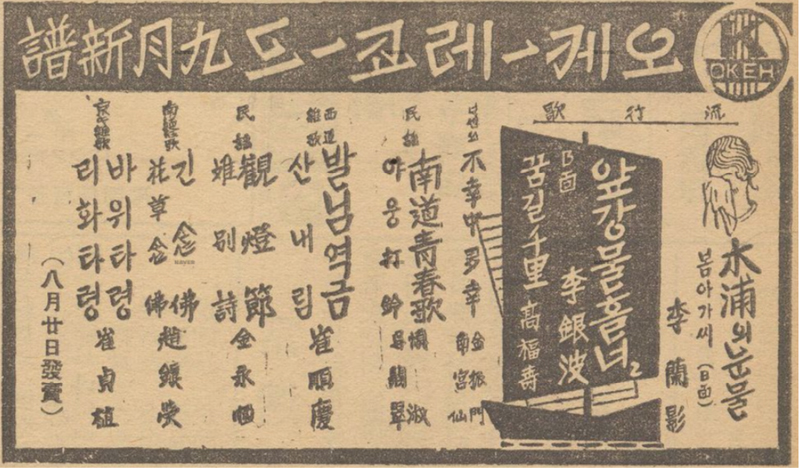 OKEH
오케ー레코ー드 九月新譜
流行歌
木浦의눈물
봄아가씨 (B面)
李蘭影
앞강물흘너
李銀波
B面
꿈길千里
高福壽
난센쓰
不幸中多幸
金振門
南宮仙
民謠
南道青春歌
야웅打鈴
西道雜歌
발님역금
산내림
崔順慶
民謠
觀燈節
離別詩
金永
南道雜歌
긴念佛
花草念佛
京畿雜歌
바위타령
리화타령
崔貞植
(八月廿日發賣)